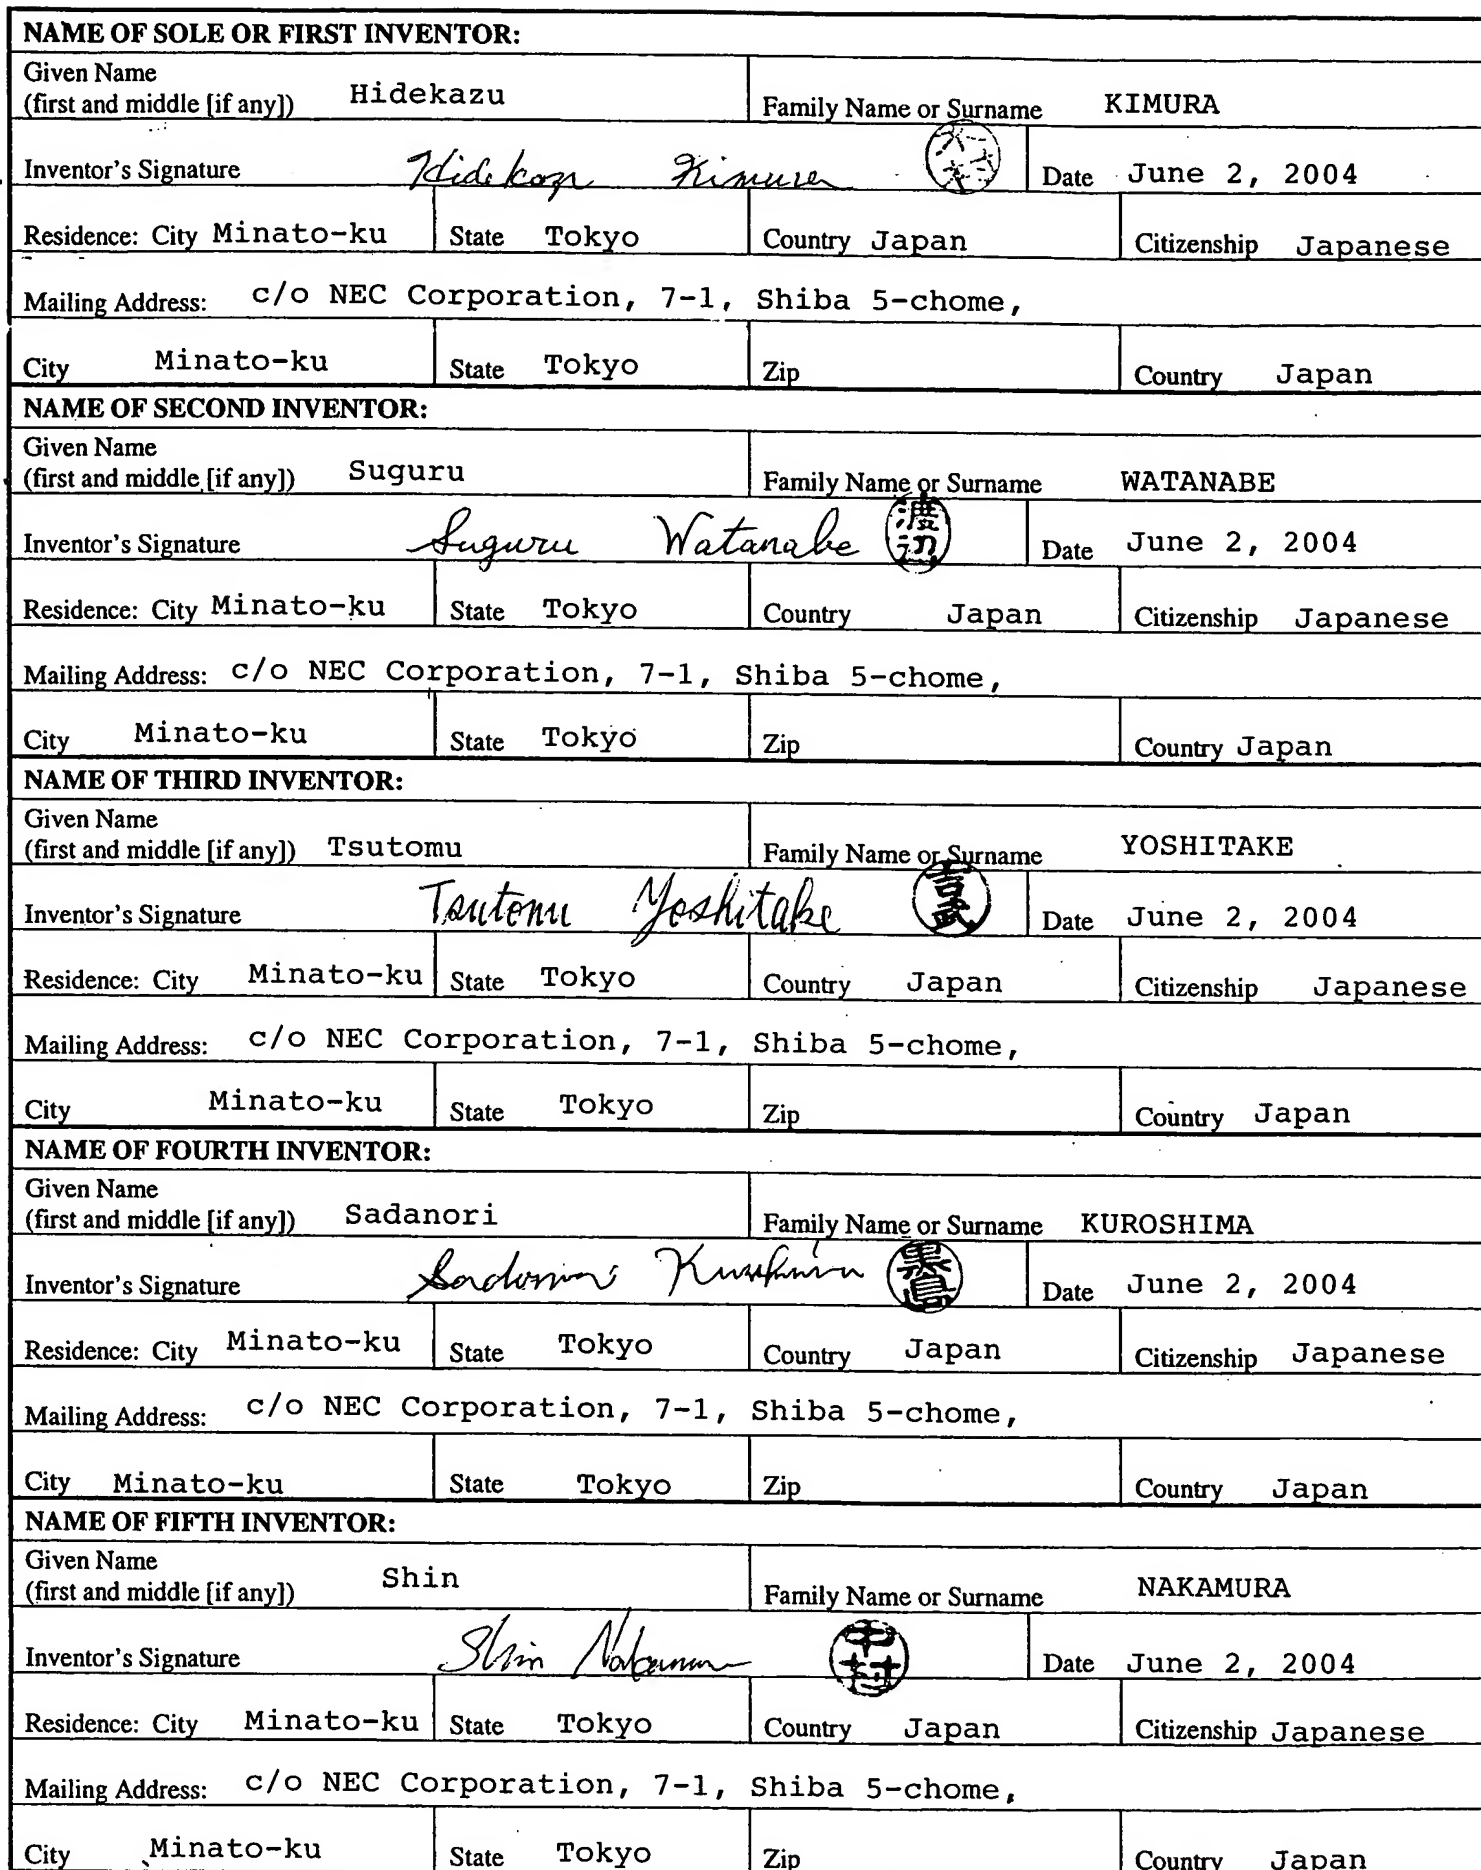 NAME OF SOLE OR FIRST INVENTOR:
Given Name
(first and middle [if any]) Hidekazu Family Name or Surname KIMURA
Inventor's Signature Hidekazu Kimura Date June 2, 2004
Residence: City Minato-ku State Tokyo Country Japan Citizenship Japanese
Mailing Address: c/o NEC Corporation, 7-1, Shiba 5-chome,
City Minato-ku State Tokyo Zip Country Japan
NAME OF SECOND INVENTOR:
Given Name
(first and middle [if any]) Suguru Family Name or Surname WATANABE
Inventor's Signature Suguru Watanabe Date June 2, 2004
Residence: City Minato-ku State Tokyo Country Japan Citizenship Japanese
Mailing Address: c/o NEC Corporation, 7-1, Shiba 5-chome,
City Minato-ku State Tokyo Zip Country Japan
NAME OF THIRD INVENTOR:
Given Name
(first and middle [if any]) Tsutomu Family Name or Surname YOSHITAKE
Inventor's Signature Tsutomu Yoshitake 吉武 Date June 2, 2004
Residence: City Minato-ku State Tokyo Country Japan Citizenship Japanese
Mailing Address: c/o NEC Corporation, 7-1, Shiba 5-chome,
City Minato-ku State Tokyo Zip Country Japan
NAME OF FOURTH INVENTOR:
Given Name
(first and middle [if any]) Sadanori Family Name or Surname KUROSHIMA
Inventor's Signature Sadanori Kuroshima 黒島 Date June 2, 2004
Residence: City Minato-ku State Tokyo Country Japan Citizenship Japanese
Mailing Address: c/o NEC Corporation, 7-1, Shiba 5-chome,
City Minato-ku State Tokyo Zip Country Japan
NAME OF FIFTH INVENTOR:
Given Name
(first and middle [if any]) Shin Family Name or Surname NAKAMURA
Inventor's Signature Shin Nakamura 中村 Date June 2, 2004
Residence: City Minato-ku State Tokyo Country Japan Citizenship Japanese
Mailing Address: c/o NEC Corporation, 7-1, Shiba 5-chome,
City Minato-ku State Tokyo Zip Country Japan